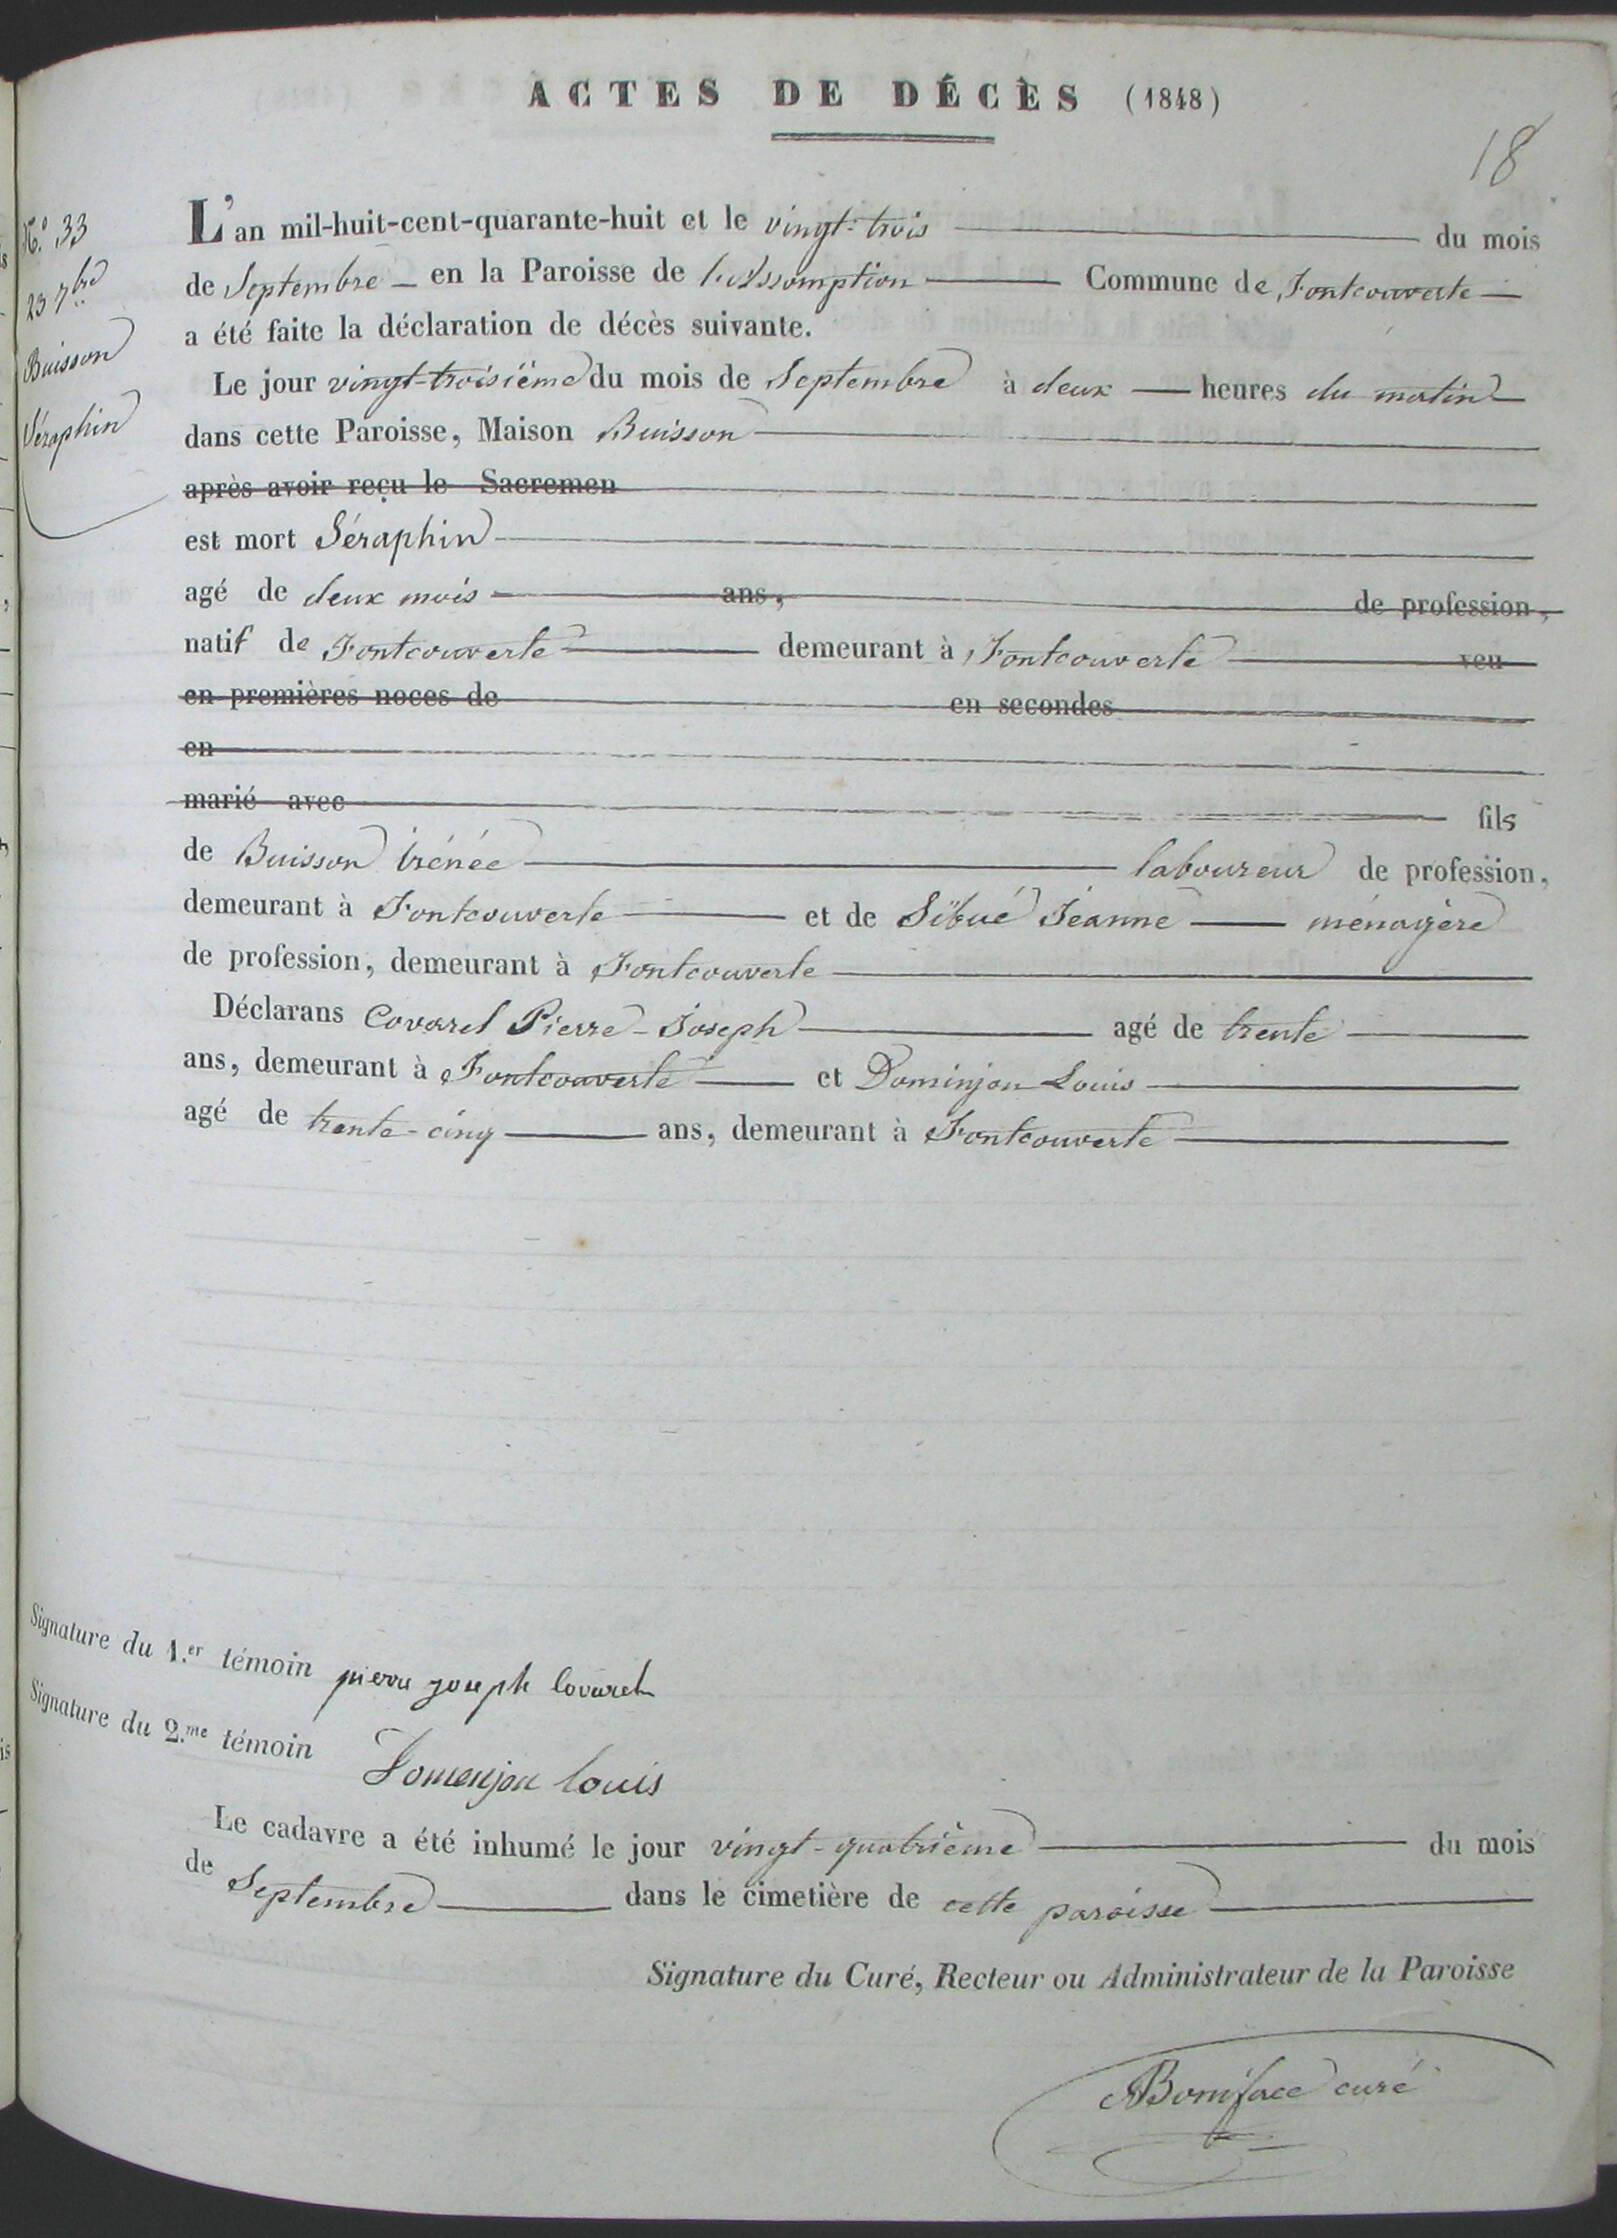 ACTES DE DÉCÈS (1848)
18
N.º 33
23 7.bre
Buisson
Séraphin
L'an mil-huit-cent-quarante-huit et le vingt-trois du mois
de Septembre en la Paroisse de l'Assomption Commune de Fontcouverte
a été faite la déclaration de décès suivante.
Le jour vingt-troisième du mois de Septembre à deux heures du matin
dans cette Paroisse, Maison Buisson
après avoir reçu le Sacremen
est mort Séraphin
agé de deux mois ans, de profession,
natif de Fontcouverte demeurant à Fontcouverte veu
en premières noces de en secondes
en
marié avec fils
de Buisson Irénée laboureur de profession,
demeurant à Fontcouverte et de Sibué Jéanne ménagère
de profession, demeurant à Fontcouverte
Déclarans Covarel Pierre-Joseph agé de trente
ans, demeurant à Fontcouverte et Dominjon Louis
agé de trente-cinq ans, demeurant à Fontcouverte
Signature du 1.er témoin pierre joseph Covarel
Signature du 2.me témoin Domenjon Louis
Le cadavre a été inhumé le jour vingt-quatrième du mois
de Septembre dans le cimetière de cette paroisse
Signature du Curé, Recteur ou Administrateur de la Paroisse
Boniface curé